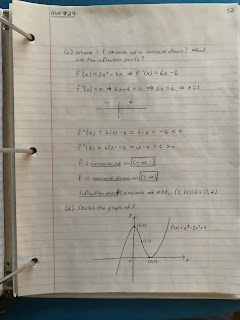 HW #24
12
(c) where is f concave up or concave down? What
are the inflection points?
f'(x) = 3x² - 6x ⇒ f''(x) = 6x - 6
f''(x) = 0 ⇒ 6x - 6 = 0 ⇒ 6x = 6 ⇒ x = 1
- +
1
f''(0) = 6(0) - 6 = 0 - 6 = -6 < 0
f''(2) = 6(2) - 6 = 12 - 6 = 6 > 0
f is concave on (-∞, 1)
f is concave down on (1, ∞)
Inflection points occurs at x=1, (1, f(1)) = (1, 2)
(d) Sketch the graph of f.
y
(0,4)
f(x) = x³ - 3x² + 4
(1,2)
0
(2,0)
x